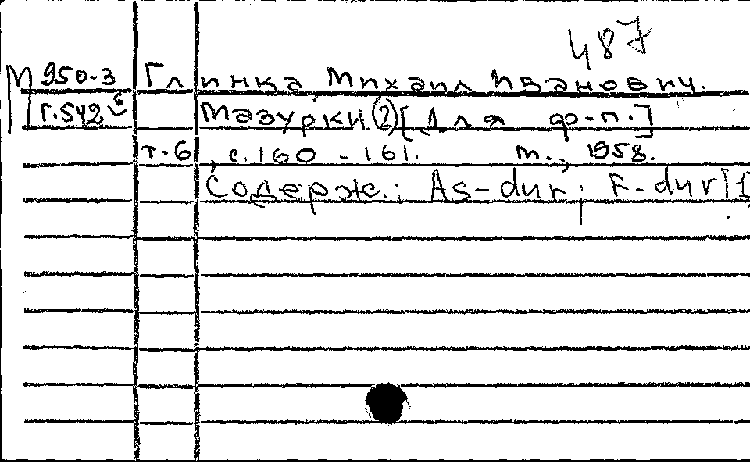 487
М 950-3 Глинка, Михаил Иванович.
Г.542 Мазурки (2) [Для ф-п.]
т-6, с. 160 - 161. М., 1958.
Содерж.: As-dur; F-dur